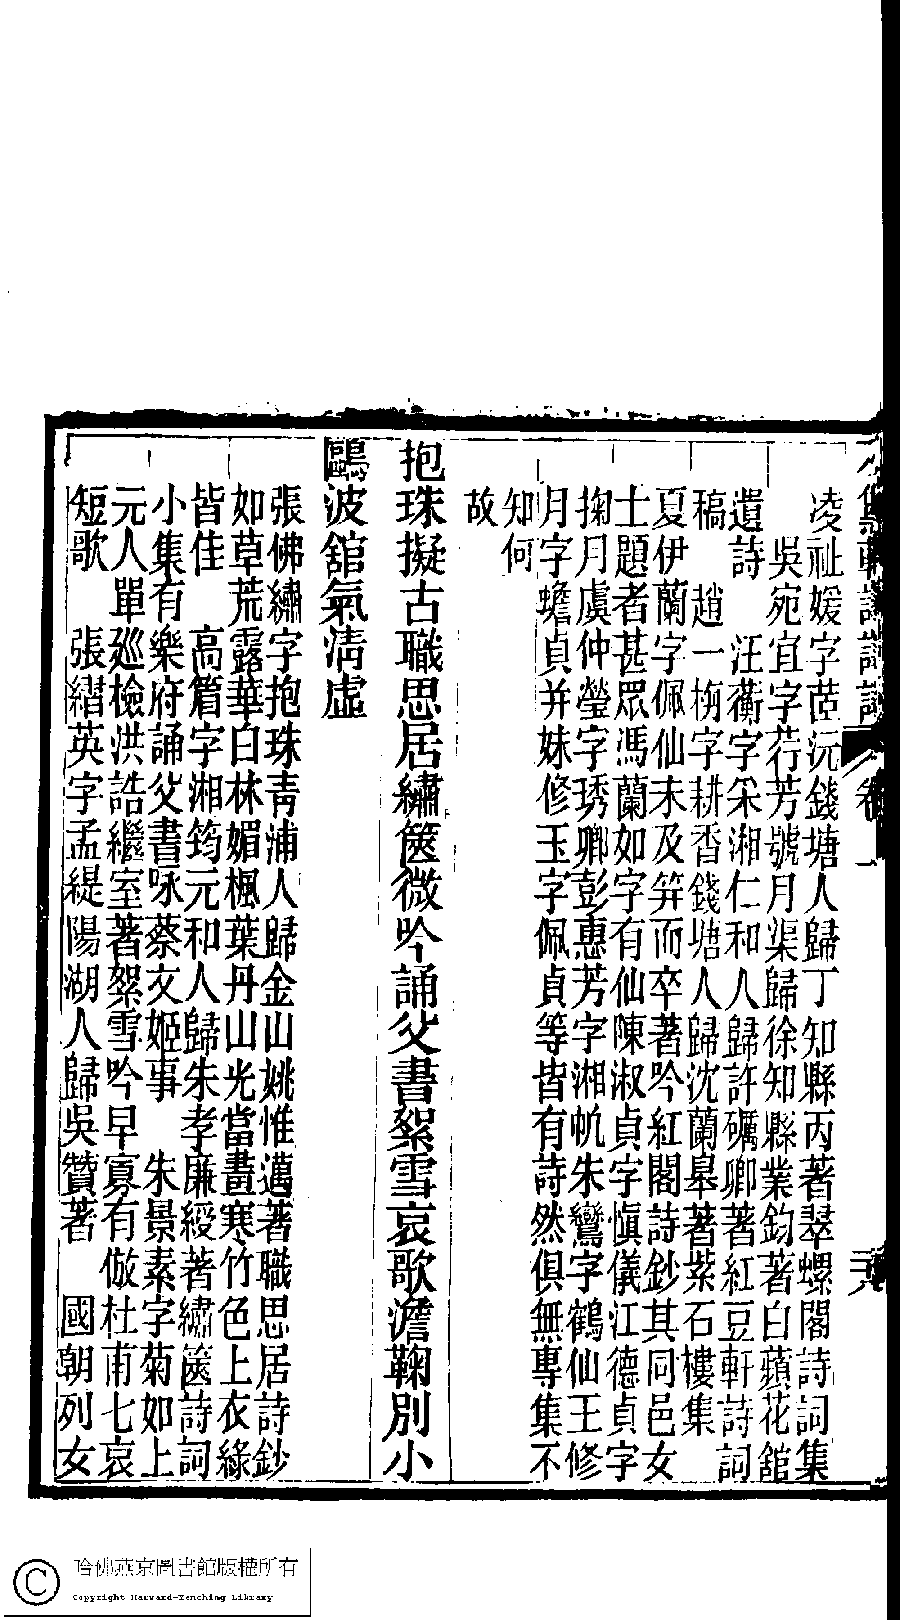 凌祉媛字茝沅錢塘人歸丁知縣丙著翠螺閣詩詞集
吳宛宜字荇芳號月渠歸徐知縣業鈞著白蘋花館
遺詩　汪蘅字采湘仁和人歸許礪卿著紅豆軒詩詞
稿　趙一栴字耕香錢塘人歸沈蘭皋著紫石樓集
夏伊蘭字佩仙未及笄而卒著吟紅閣詩鈔其同邑女
士題者甚眾馮蘭如字有仙陳淑貞字愼儀江德貞字
掬月虞仲瑩字琇卿彭惠芳字湘帆朱鸞字鶴仙王修
月字蟾貞并妹修玉字佩貞等皆有詩然俱無專集不
知何
故
抱珠擬古職思居繡篋微吟誦父書絮雪哀歌澹鞠別小
鷗波舘氣淸虛
張佛繡字抱珠靑浦人歸金山姚惟邁著職思居詩鈔
如草荒露華白林媚楓葉丹山光當晝寒竹色上衣綠
皆佳　高篃字湘筠元和人歸朱孝廉綬著繡篋詩詞
小集有樂府誦父書咏蔡文姬事　朱景素字菊如上
元人單廵檢洪誥繼室著絮雪吟早寡有倣杜甫七哀
短歌　張𦈡英字孟緹陽湖人歸吳贊著　國朝列女
二六
哈佛燕京圖書館版權所有
Copyright Harvard-Yenching Library